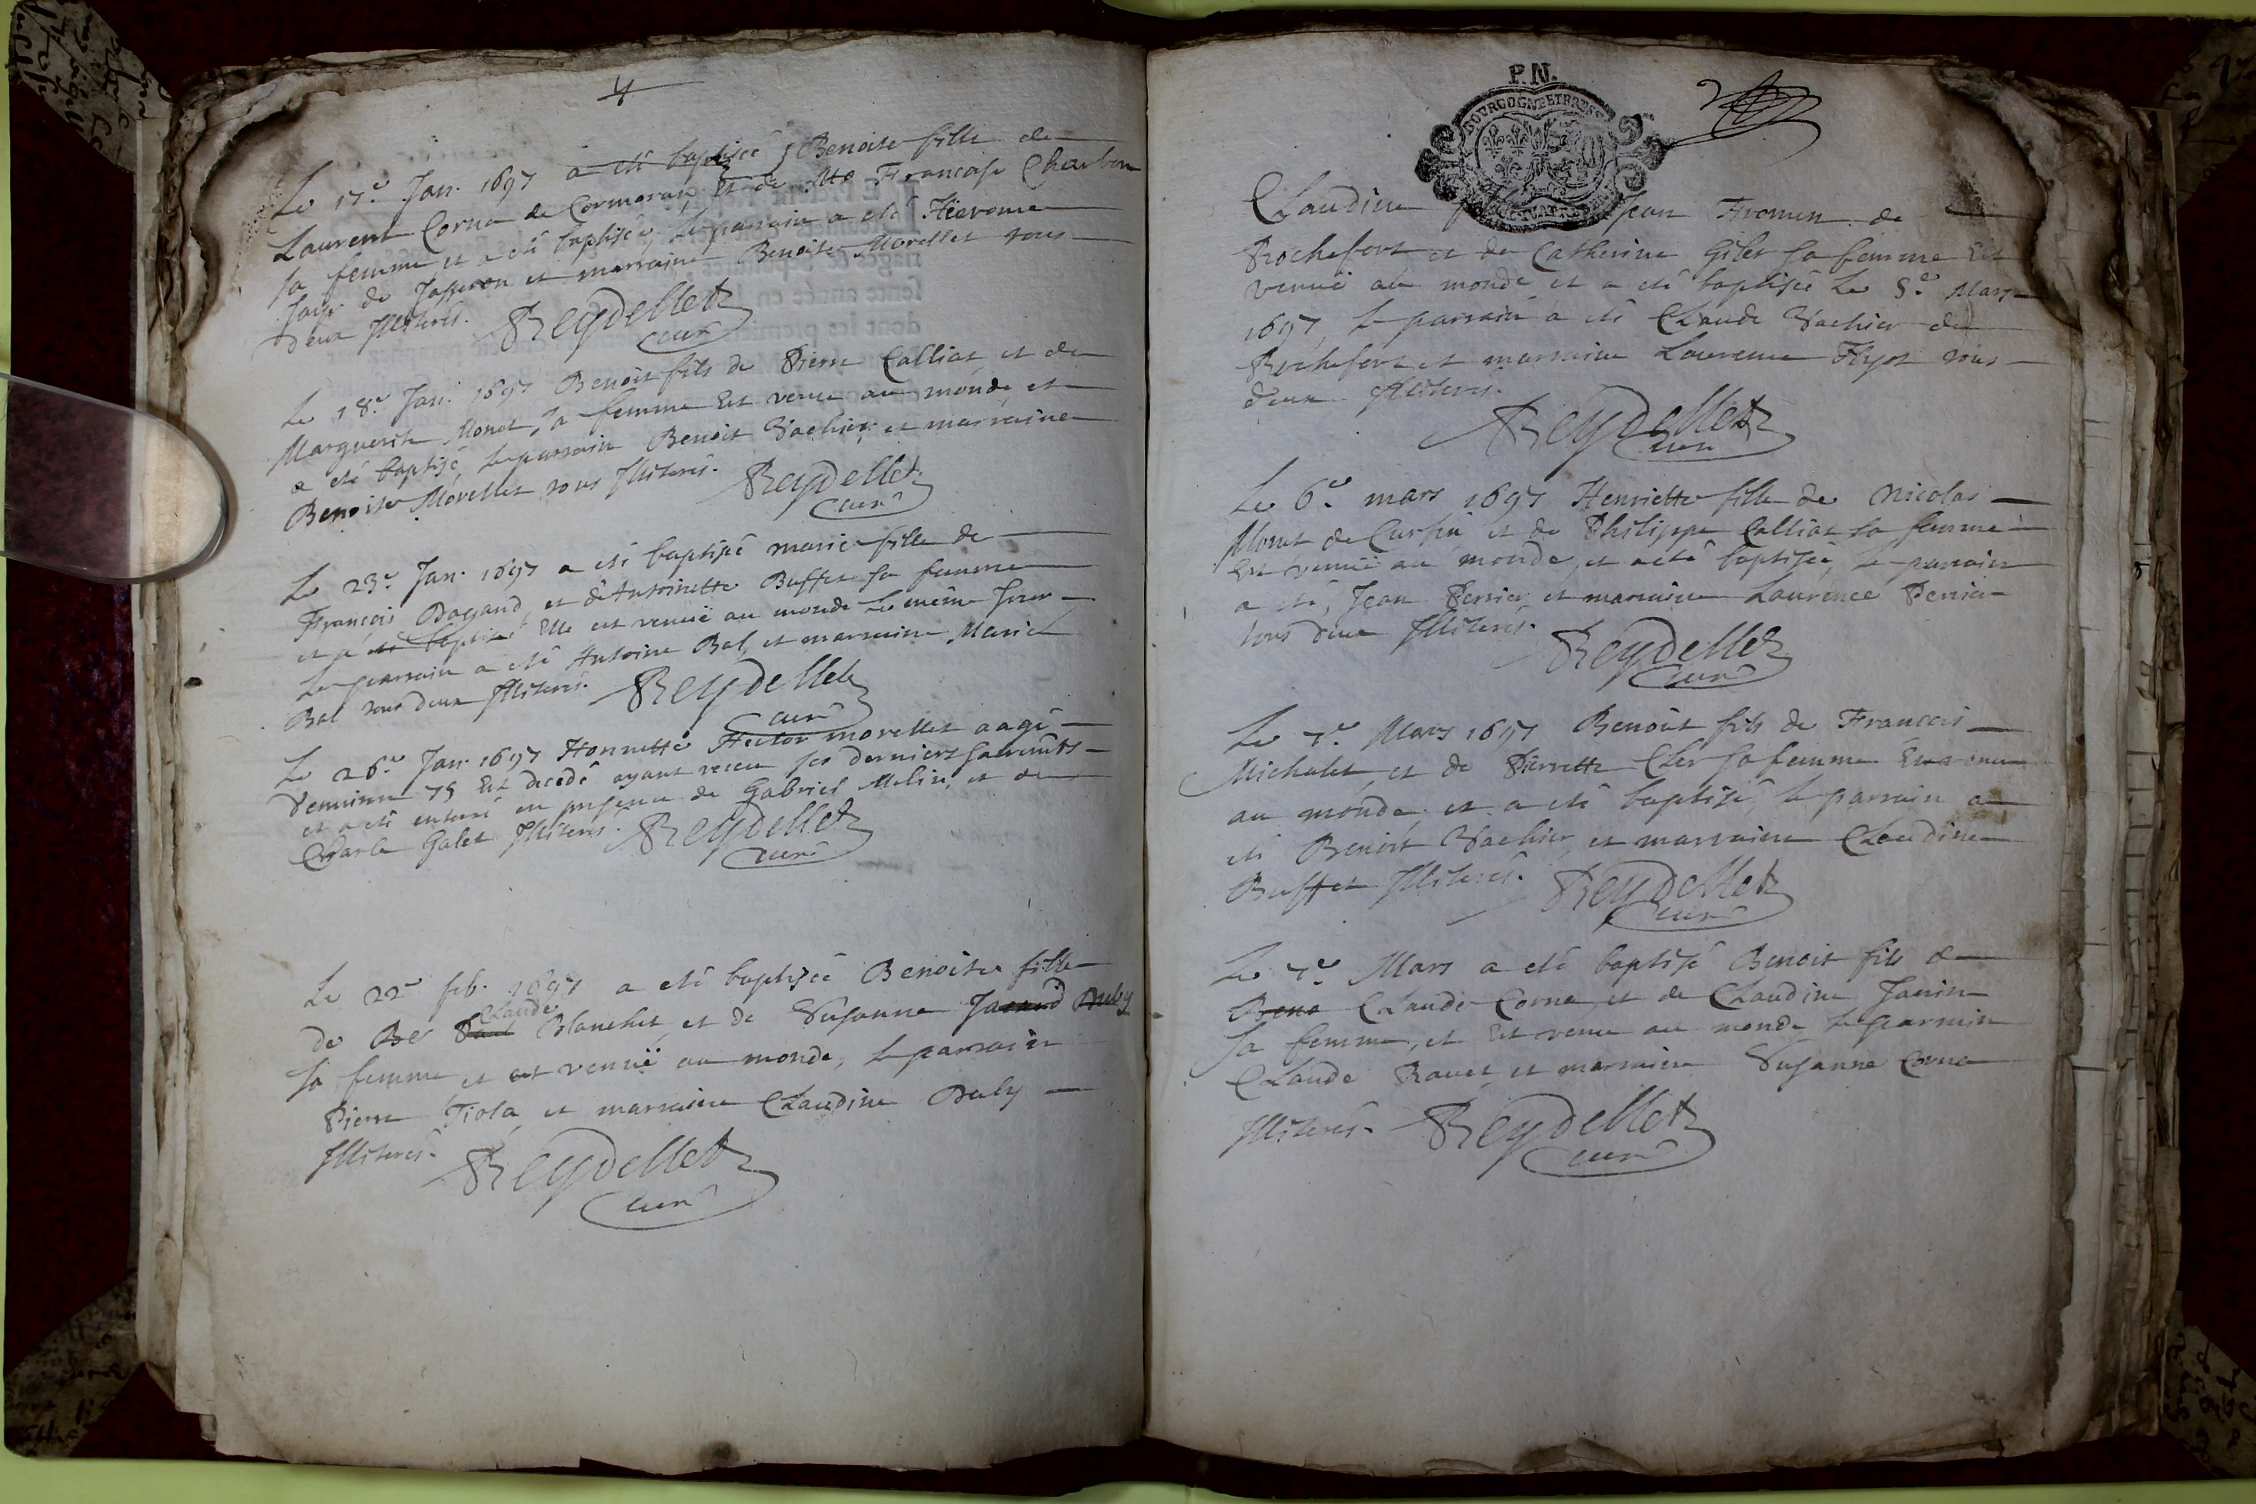 Le 17e Jan. 1697 a eté baptisée Benoite fille de
Laurent Corna de Cormoran et de Françoise Charbon
sa femme et a eté baptisée, le parrain a eté Hierome
de Jasseron et marraine Benoite Morellet tous
deux Illiterés. Reydellet
curé
Le 18e Jan. 1697 Benoit fils de Pierre Calliat et de
Marguerite Monet sa femme Est venu au monde, et
a eté baptisé, le parrain Benoit Vachier et marraine
Benoite Morellet tous Illiterés. Reydellet
curé
Le 23e Jan. 1697 a eté baptisé marie fille de
François Dagand et d'Antoinette Buffet sa femme
et a eté baptisé Elle est venuë au monde le même Jour
Le parrain a eté Antoine Bal, et marraine Marie
Bal tous deux Illiterés. Reydellet
curé
Le 26e Jan. 1697 Honnette Hector morellet aagé
d'environ 75 Est decedé ayant receu ses derniers sacremts
et a eté enterré en presence de Gabriel Melin, et de
Charle Galet Illiterés. Reydellet
curé
Le 22e feb. 1697 a eté baptisée Benoite fille
Claude
de Be Paul Blanchet et de Susanne Duby
sa femme et est venuë au monde, le parrain
Pierre Tiola et marraine Claudine Duby
Illiterés. Reydellet
curé
P.N.
BOURGOGNE ET BRESSE
Claudine Jean Fromen de
Rochefort et de Catherine Gilet sa femme Est
venuë au monde et a eté baptisée Le 5e Mars
1697, le parrain a eté Claude Vachier de
Rochefort et marraine Laurence Flyot tous
deux Illiterés.
Reydellet
curé
Le 6e mars 1697 Henriette fille de Nicolas
Monet de et de Philippe Calliat sa femme
Est venuë au monde, et a eté baptisée, le parrain
a eté, Jean Perrier et marraine Laurence Perrier
tous deux Illiterés. Reydellet
curé
Le 7e Mars 1697 Benoit fils de Francois
Michalet, et de Pierrette Cler sa femme Est venu
au monde et a eté baptisé, le parrain a
eté Benoit Vachier, et marraine Claudine
Buffet Illiterés. Reydellet
curé
Le 7e Mars a eté baptisé Benoit fils de
Beno Claude Corna, et de Claudine Janin
sa femme, et Est venu au monde, le parrain
Claude Ravet, et marraine Susanne Corna
Illiterés. Reydellet
curé